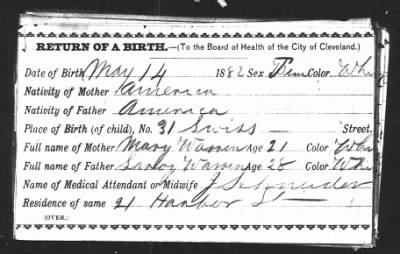 RETURN OF A BIRTH.—(To the Board of Health of the City of Cleveland.)
Date of Birth May 14 1882 Sex Fem Color Whi
Nativity of Mother America
Nativity of Father America
Place of Birth (of child), No. 31 Swiss Street.
Full name of Mother Mary Warren Age 21 Color Whi
Full name of Father Warren Age 28 Color Whi
Name of Medical Attendant or Midwife J Schneider
Residence of same 21 Harbor St
(OVER.)